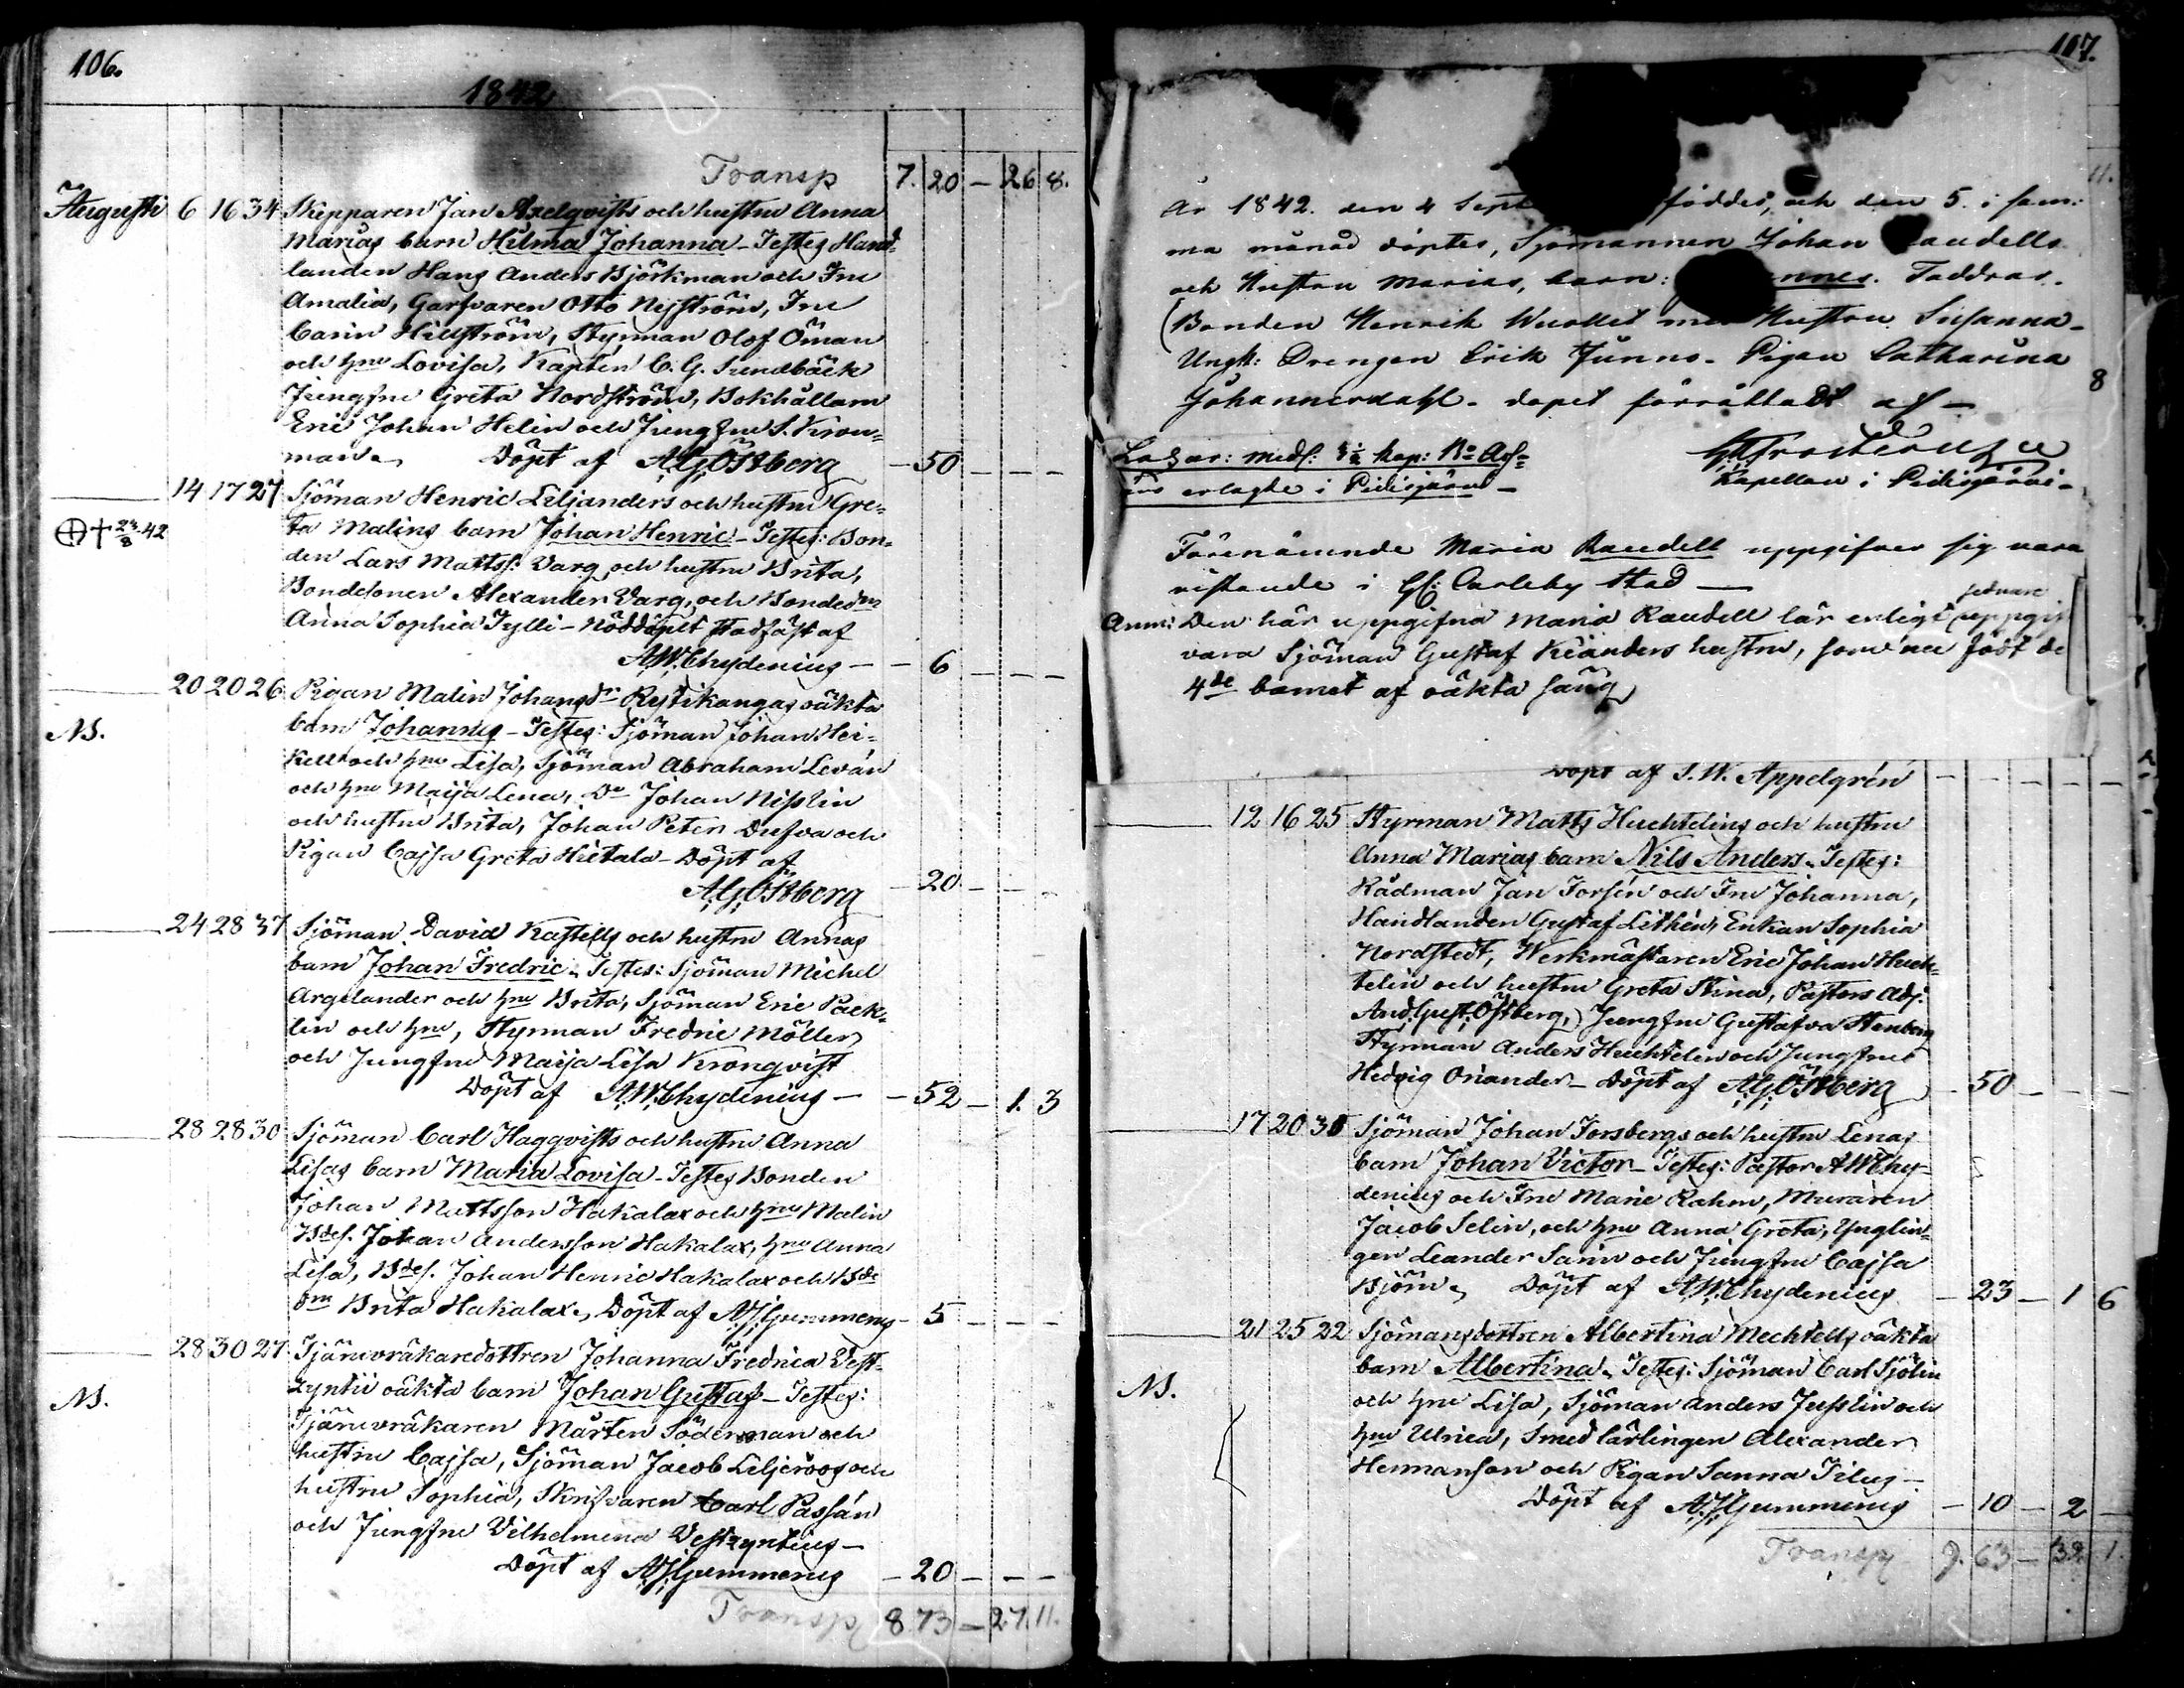 106.
1842
Transp 7. 20 - 26 8.
Augusti 6 16 34 Skepparen Jan Axelqvists och hustru Anna
Marias barn Hilma Johanna - Testes Hand-
landen Hans Anders Björkman och Fru
Amalia, Garfvaren Otto Nyström, Fru
Carin Hellström, Styrman Olof Öman
och hru Lovisa, Kapten C. G. Sundbäck
Jungfru Greta Nordström, Bokhållarn
Eric Johan Helin och Jungfru S. Kron-
man. Döpt af A.G. Östberg - 50 - - -
14 17 27 Sjöman Henric Liljanders och hustru Gre-
24/8 42 ta Malins barn Johan Henric - Testes: Bon-
den Lars Mattss: Varg och hustru Brita,
Bondesonen Alexander Varg, och Bonded:n
Anna Sophia Jylli - Nöddöpet stadfäst af
A.W. Chydenius - - 6 - - -
20 20 26 Pigan Malin Johansdr Rystikangas oäkta
NB. barn Johannes - Testes: Sjöman Johan Hei-
kell och hru Lisa, Sjöman Abraham Levän
och hru Maija Lena, Do Johan Nisslin
och hustru Brita, Johan Peter Dufva och
Pigan Cajsa Greta Hietala - Döpt af
A.G. Östberg - 20 - - -
24 28 37 Sjöman David Kastells och hustru Annas
barn Johan Fredric. Testes: Sjöman Michel
Argelander och hru Brita, Sjöman Eric Pack-
lin och hru, Styrman Fredric Möller
och Jungfru Maija Lisa Kronqvist
Döpt af A.W. Chydenius - - 52 - 1. 3
28 28 30 Sjöman Carl Haggqvists och hustru Anna
Lisas barn Maria Lovisa - Testes Bonden
Johan Mattsson Hakalax och hru Malin
Bdes. Johan Andersson Hakalax, hru Anna
Lisa, Bdes. Johan Henric Hakalax och Bde
Brita Hakalax. Döpt af A.J. Gummerus - 5 - - -
28 30 27 Tjäruvräkaredottren Johanna Fredrica Vest-
NB. zyntii oäkta barn Johan Gustaf - Testes:
Tjäruvräkaren Mårten Söderman och
hustru Cajsa, Sjöman Jacob Liljeroos och
hustru Sophia, Skrifvaren Carl Passán
och Jungfru Vilhelmina Vestzyntius -
Döpt af A.J. Gummerus - 20 - - -
Transp 8 73 - 27. 11.
107.
11.
År 1842. den 4 Sept föddes, och den 5. i sam-
ma månad döptes, Sjömannen Johan audells
och Hustru Marias, barn: nnes. Faddrar.
(Bonden Henrik Wuollet med Hustru Susanna -
Ungk: Drengen Erik Junno - Pigan Catharina
Johannesdahl - dopet förrättadt af -
8
Kapellan i Pedersjärvi -
Förenämnde Maria Raudell uppgifver sig vara
vistande i Gl: Carleby Stad -
sednare
Anm: Den här uppgifna Maria Raudell lär enligt uppgift
vara Sjöman Gustaf Kianders hustru, som nu född de
4de barnet af oäkta säng
Döpt af S. W. Appelgrén - - - - -
12 16 25 Styrman Matts Huchtelins och hustru
Anna Marias barn Nils Anders. Testes:
Rådman Jan Forsén och Fru Johanna,
Handlanden Gustaf Lithén, Enkan Sophia
Nordstedt, Werkmästaren Eric Johan Huch-
telin och hustru Greta Stina, Pastors Adj.
And. Gust. Östberg, Jungfru Gustafva Stenberg
Styrman Anders Huchtelin och Jungfru
Hedvig Oriander - Döpt af A.G. Östberg - 50 - - -
17 20 35 Sjöman Johan Forsbergs och hustru Lenas
barn Johan Victor - Testes: Pastor A W Chy-
denius och Fru Marie Rahm, Muraren
Jacob Selin, och hru Anna Greta, Ynglin-
gen Leander Sarin och Jungfru Cajsa
Björn. Döpt af A.W. Chydenius - 23 - 1 6
21 25 22 Sjömansdottren Albertina Mechtells oäkta
NB. barn Albertina. Testes: Sjöman Carl Sjölin
och hru Lisa, Sjöman Anders Jusslin och
hru Ulrica, Smedlärlingen Alexander
Hermanson och Pigan Sanna Silius -
Döpt af A.J. Gummerus - 10 - 2 -
Transp 9. 63 - 32 1.